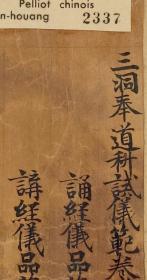 Pelliot chinois
n-houang 2337
三洞奉道科誡儀範卷
誦經儀品
講經儀品